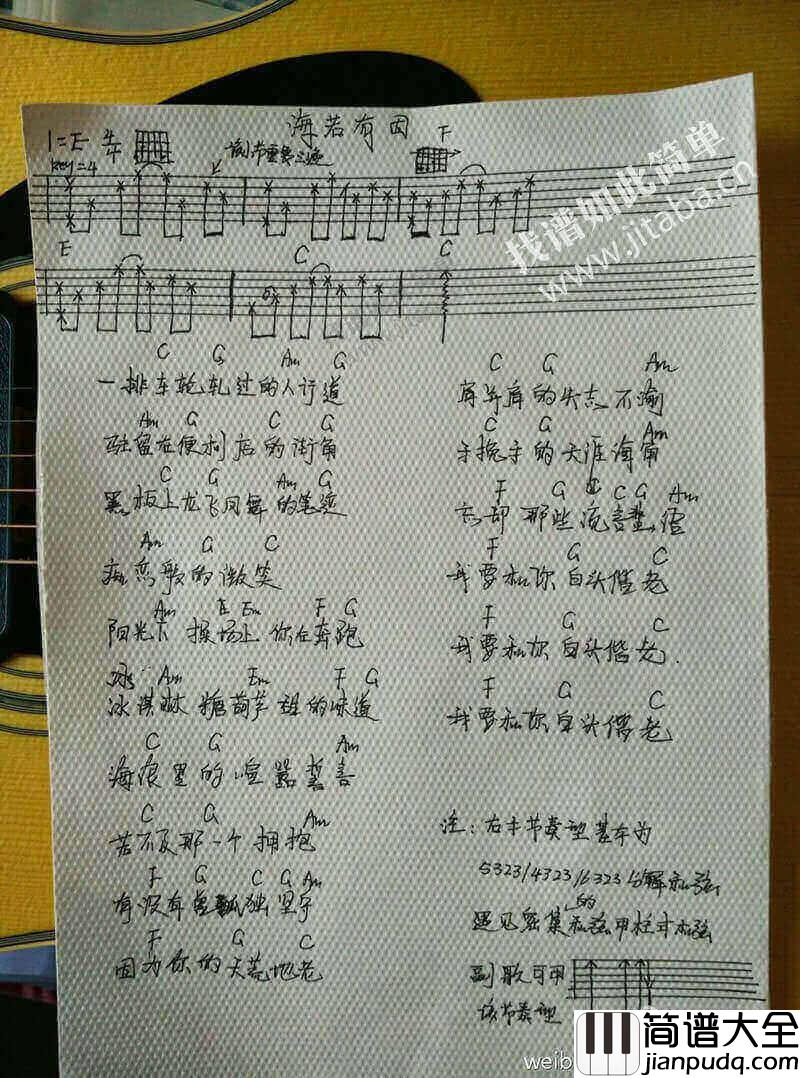 海若有因
1=E 4/4
key=4
该节重复三遍
F
E C C
C G Am G
一排车轮轧过的人行道
Am G C G
驻留在便利店的街角
C G Am G
黑板上龙飞凤舞的笔迹
Am G C
恋歌的微笑
Am E Em F G
阳光下 操场上 你在奔跑
Am Em F G
冰淇淋 糖葫芦 甜的味道
C G Am
海浪里的喧嚣誓言
C G Am
若不及那一个拥抱
F G C G Am
有没有孤独坚守
F G C
因为你的天荒地老
C G Am
肩并肩的矢志不渝
C G Am
手挽手的天涯海角
F G C C G Am
忘却那些流言蜚语
F G C
我要和你白头偕老
F G C
我要和你白头偕老
F G C
我要和你白头偕老
注:右手节奏型基本为
5323/4323/6323分解和弦
遇见密集的和弦用柱式和弦
副歌可用
该节奏型
找谱如此简单
www.jitaba.cn
weib
简谱大全
jianpudq.com